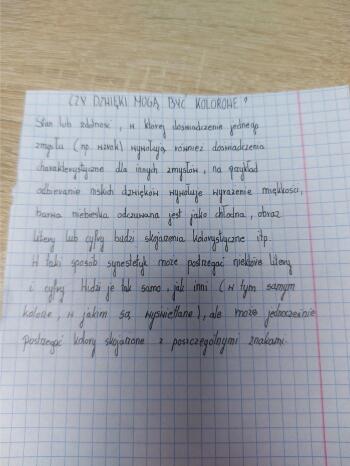 CZY DZWIĘKI MOGĄ BYĆ KOLOROWE?
Stan lub zdolność, w której doświadczenie jednego
zmysłu (np. wzrok) wywołują również doświadczenia
charakterystyczne dla innych zmysłów, na przykład
odbieranie niskich dzwięków wywołuje wyrażenie miękkości,
barwa niebieska odczuwana jest jako chłodna, obraz
litery lub cyfry budzi skojarzenia kolorystyczne itp.
W taki sposób synestetyk może postrzegać niektóre litery
i cyfry. Widzi je tak samo, jak inni (w tym samym
kolorze, w jakim są wyświetlane), ale może jednocześnie
postrzegać kolory skojarzone z poszczególnymi znakami.